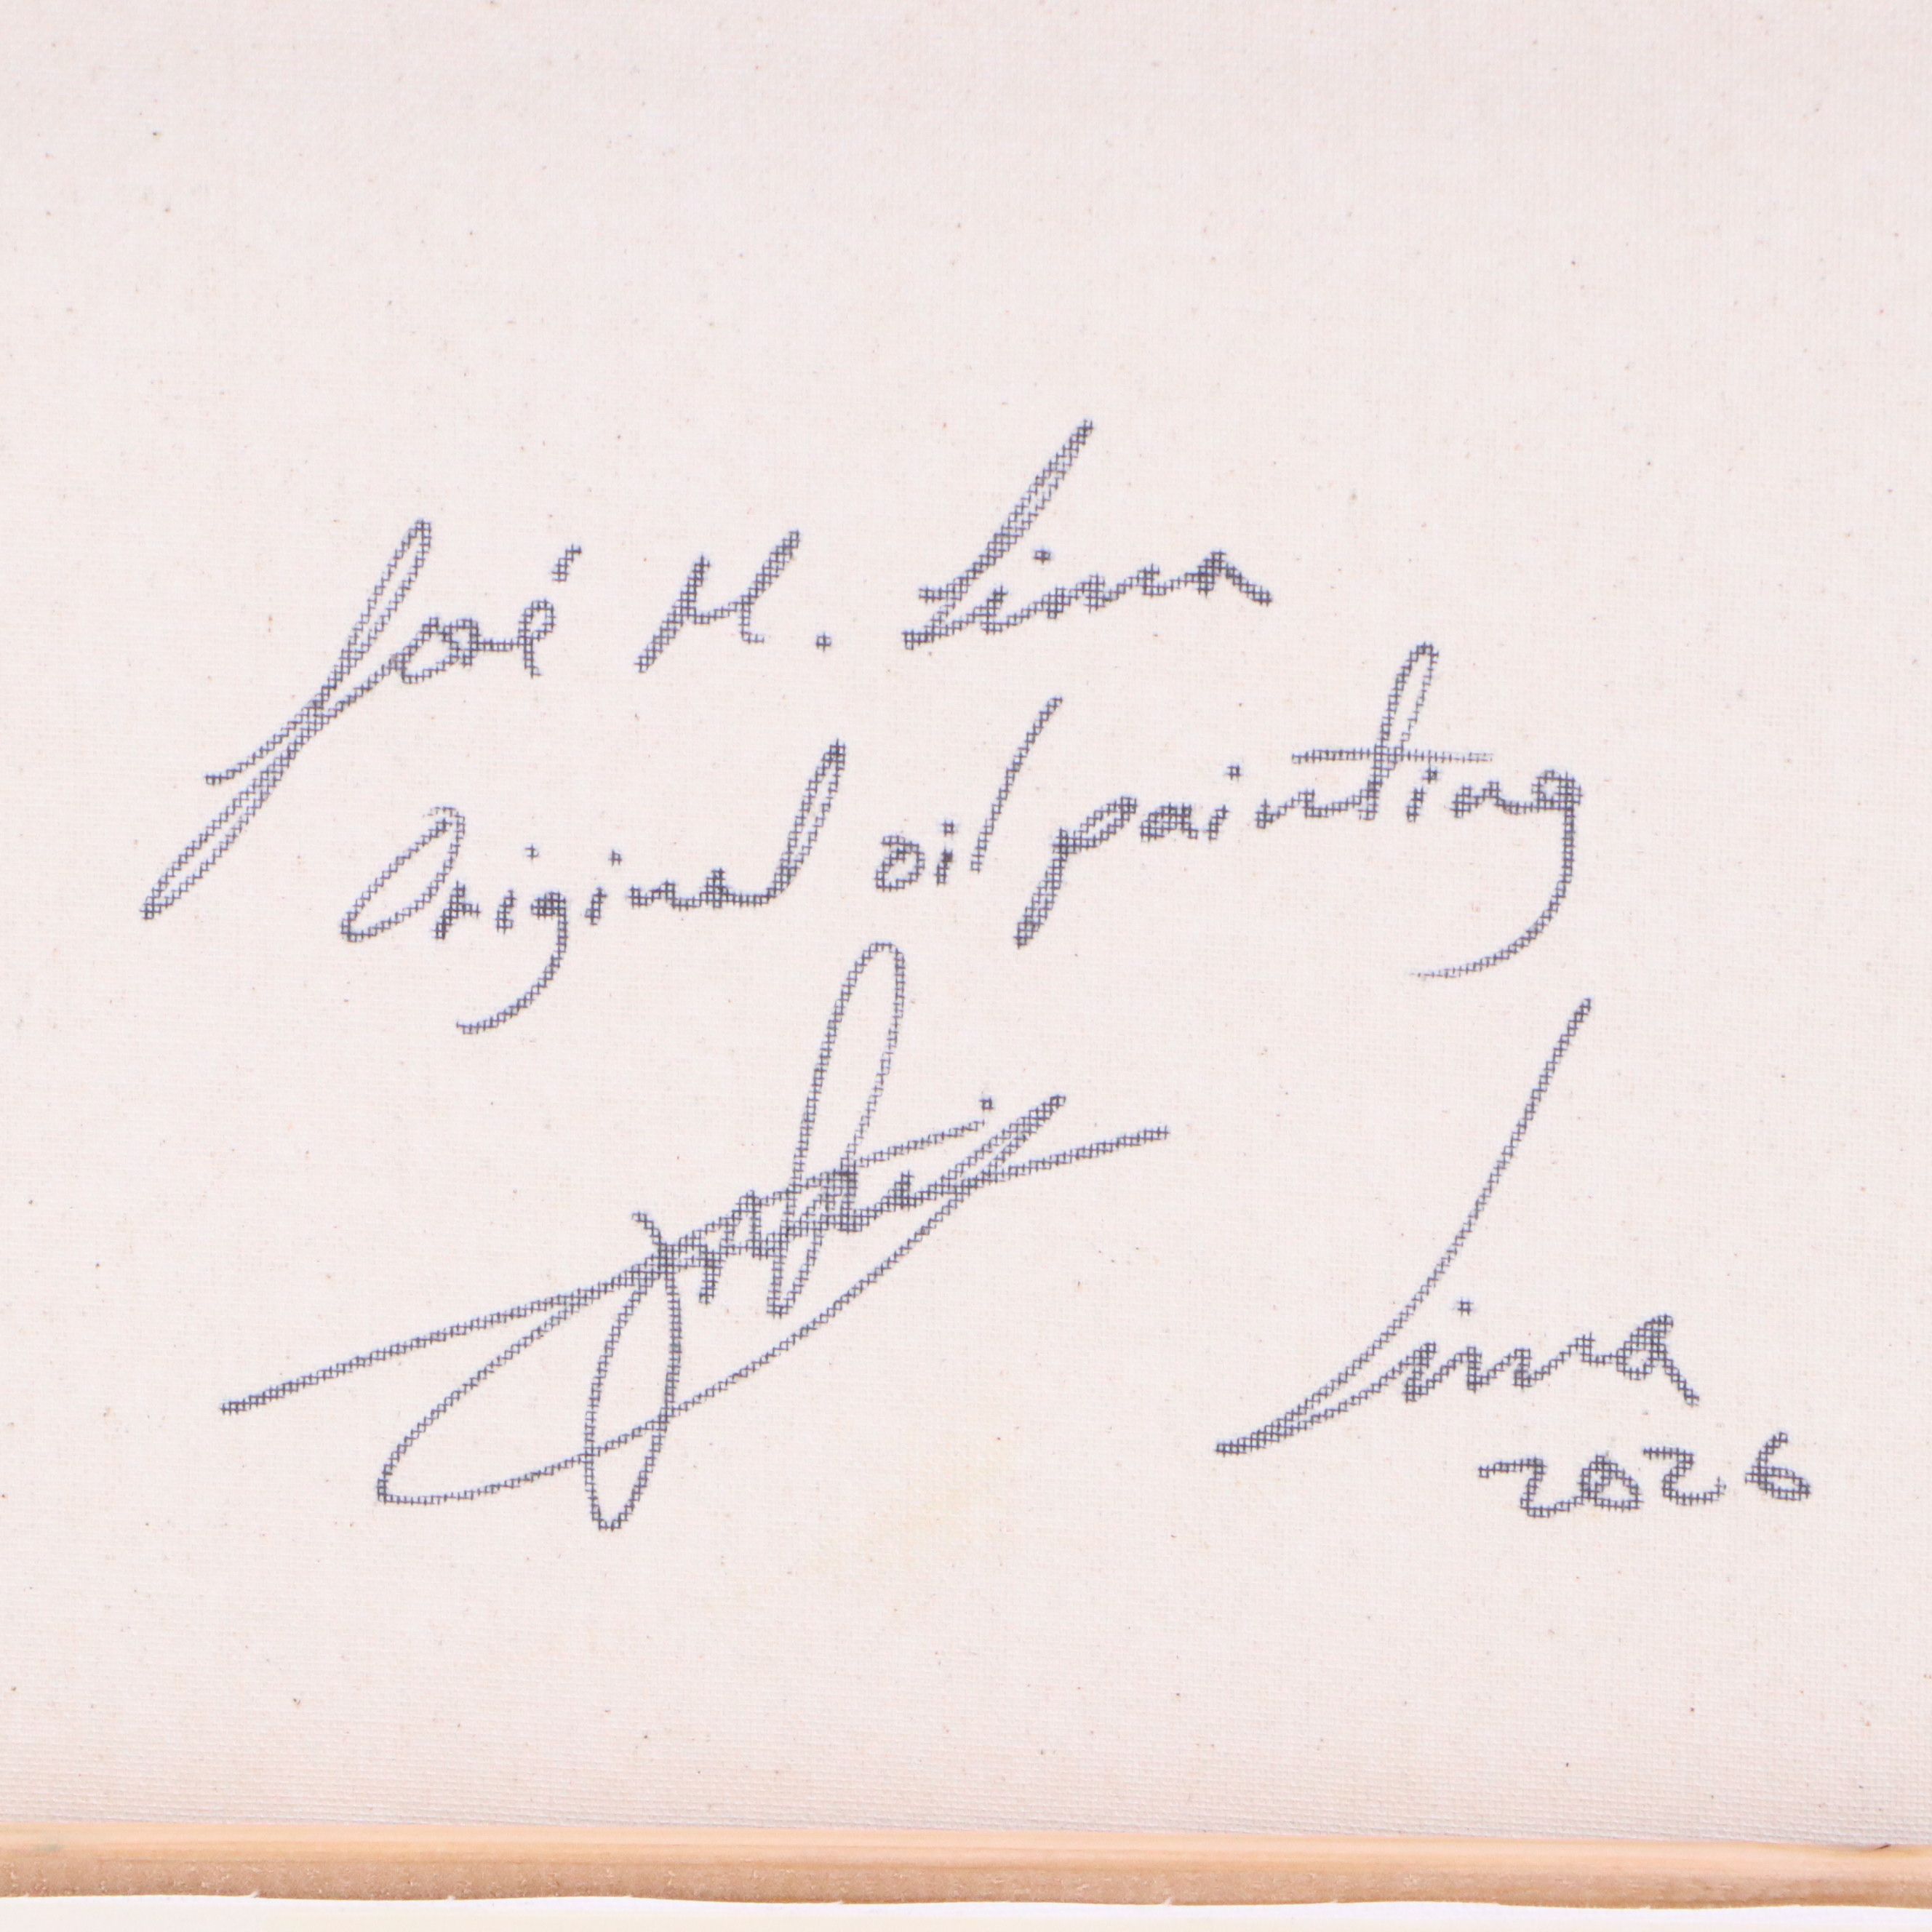 José M. Lima
Original oil painting
Lima
2026